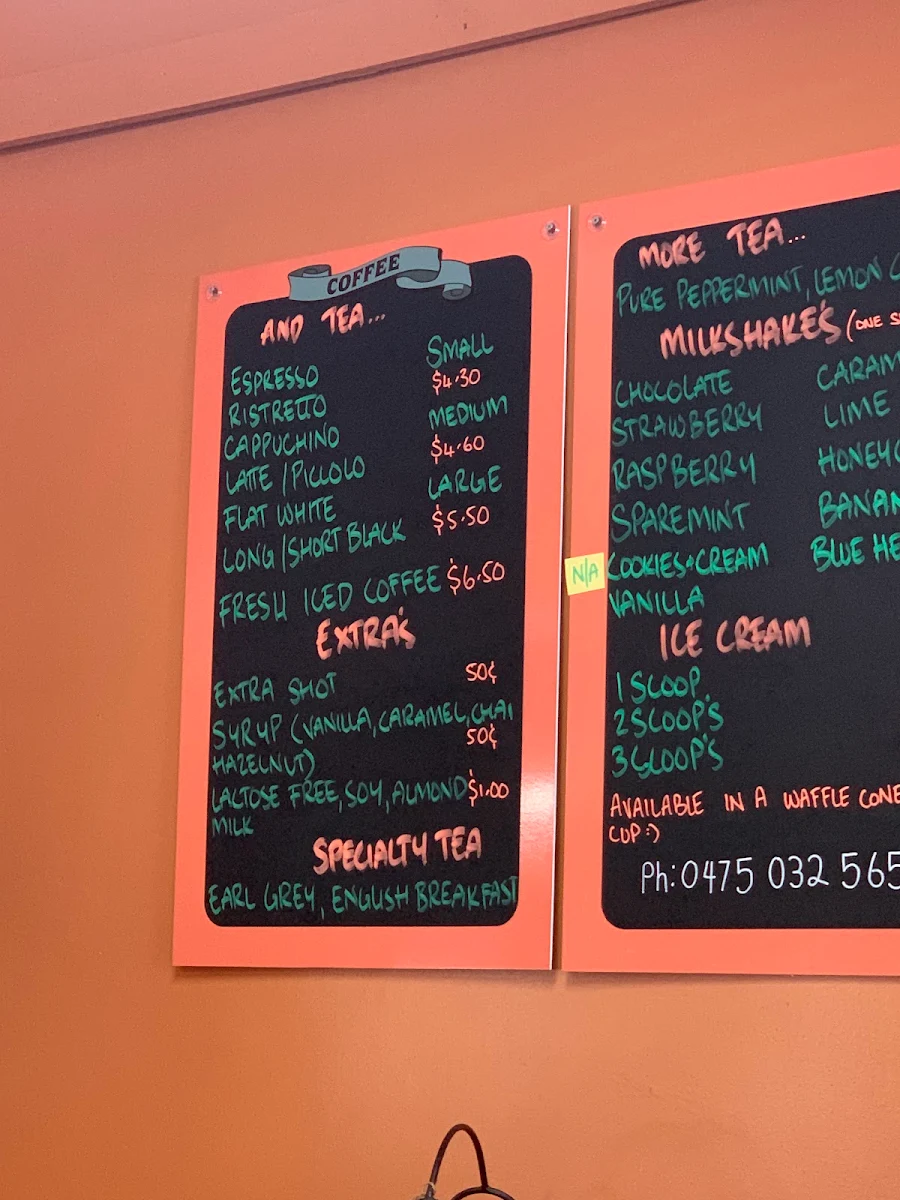 COFFEE
AND TEA...
SMALL
ESPRESSO $4.30
RISTRETTO MEDIUM
CAPPUCHINO $4.60
LATTE / PICCOLO LARGE
FLAT WHITE $5.50
LONG / SHORT BLACK
FRESH ICED COFFEE $6.50
EXTRA'S
EXTRA SHOT 50¢
SYRUP (VANILLA, CARAMEL, CHAI
HAZELNUT) 50¢
LACTOSE FREE, SOY, ALMOND $1.00
MILK
SPECIALTY TEA
EARL GREY, ENGLISH BREAKFAST
MORE TEA...
PURE PEPPERMINT, LEMON
MILKSHAKE'S (ONE
CHOCOLATE CARAM
STRAWBERRY LIME
RASPBERRY HONEY
SPAREMINT BANAN
N/A COOKIES+CREAM BLUE HE
VANILLA
ICE CREAM
1 SCOOP
2 SCOOP'S
3 SCOOP'S
AVAILABLE IN A WAFFLE CONE
CUP :)
Ph: 0475 032 565